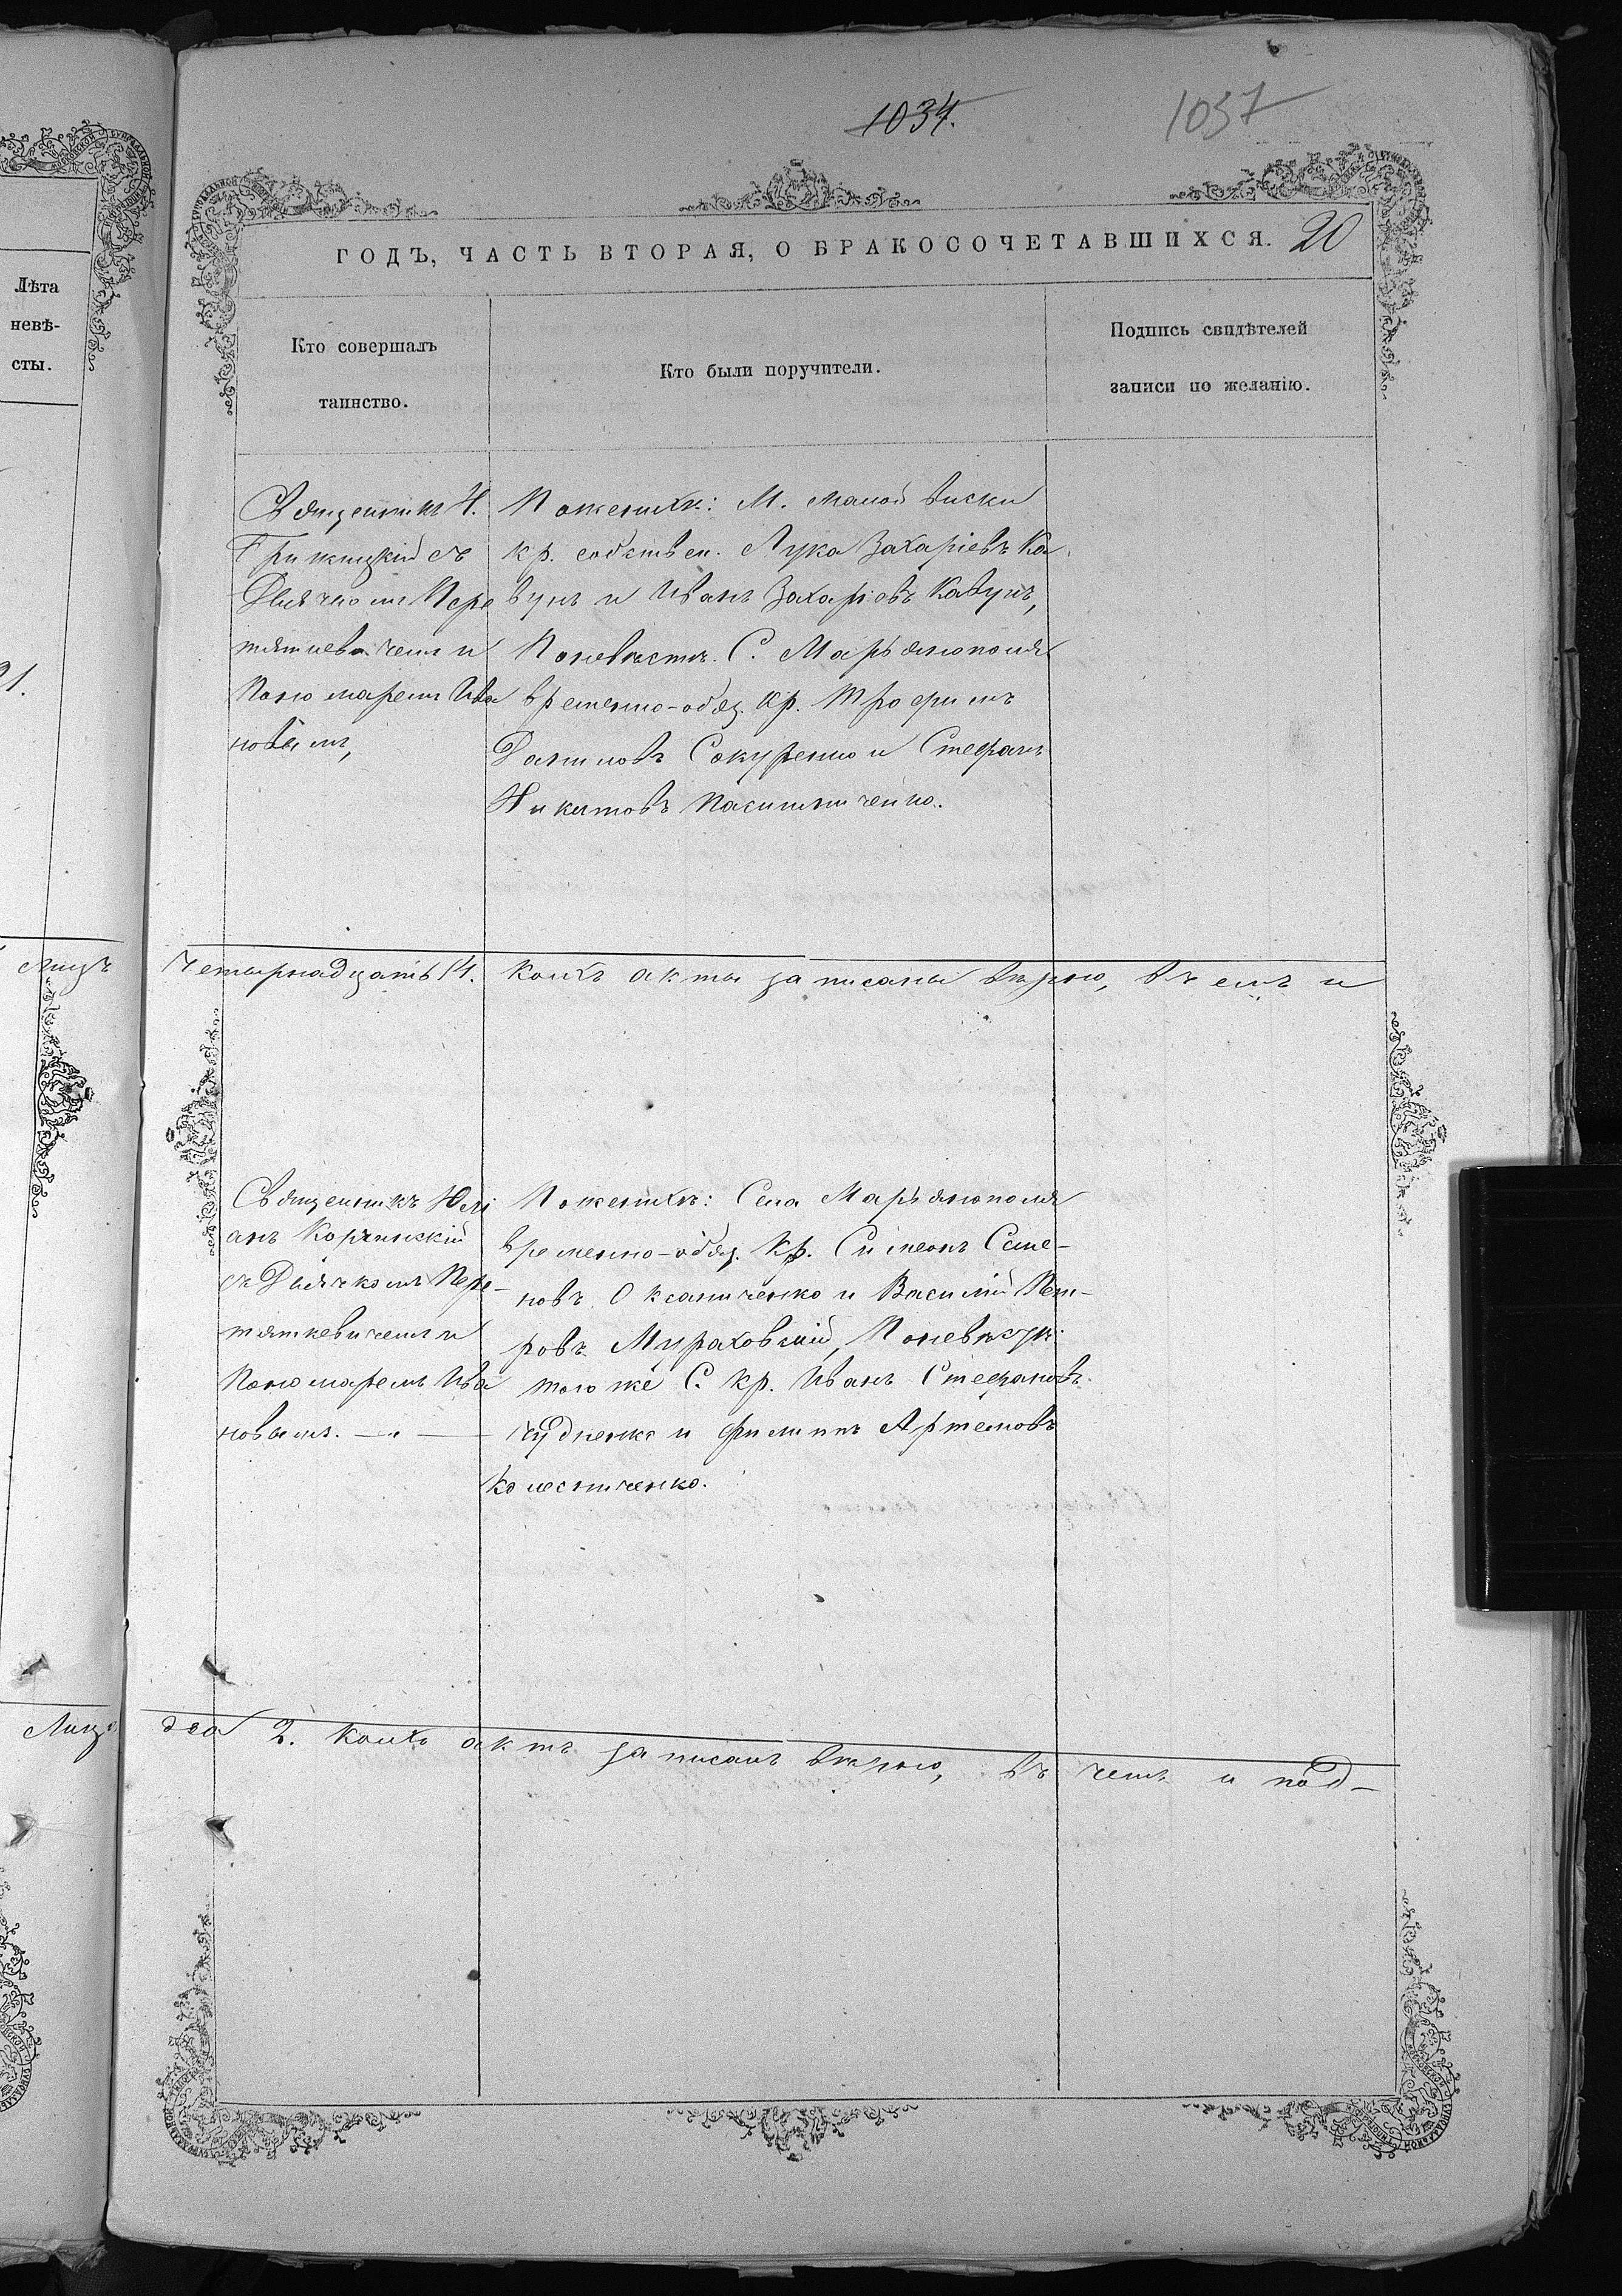 1034.
1037
ГОДЪ, ЧАСТЬ ВТОРАЯ, О БРАКОСОЧЕТАВШИХСЯ. 20
Лѣта
невѣ-
сты.
Кто совершалъ
таинство.
Кто были поручители.
Подпись свидѣтелей
записи по желанію.
21.
Священникъ І.
Грижицкій съ
Дьячкомъ Пере
тяткевичемъ и
Пономаремъ Ива
новымъ,
По женихѣ: М. Малой Виски
кр. собствен. Лука Захаріевъ Ка
вунъ и Иванъ Захаріевъ Кавунъ,
По невѣстѣ. С. Марьянополя
временно-обяз. кр. Трофимъ
Даниловъ Сокуренко и Стефанъ
Никитовъ Пасишниченко.
лицъ четырнадцать 14. коихъ акты записаны вѣрно, въ чемъ и
Священникъ Юлі
анъ Корчинскій
съ Дьячкомъ Пере-
тяткевичемъ и
Пономаремъ Ива
новымъ.
По женихѣ: Села Марьянополя
временно-обяз. кр. Симеонъ Семе-
новъ Оксаниченко и Василій Пет-
ровъ Мураховскій, По невѣстѣ:
того же С. кр. Иванъ Стефановъ
Чудненко и Филиппъ Артемовъ
Колесниченко.
Лицъ два 2. коихъ актъ записанъ вѣрно, въ чемъ и под-